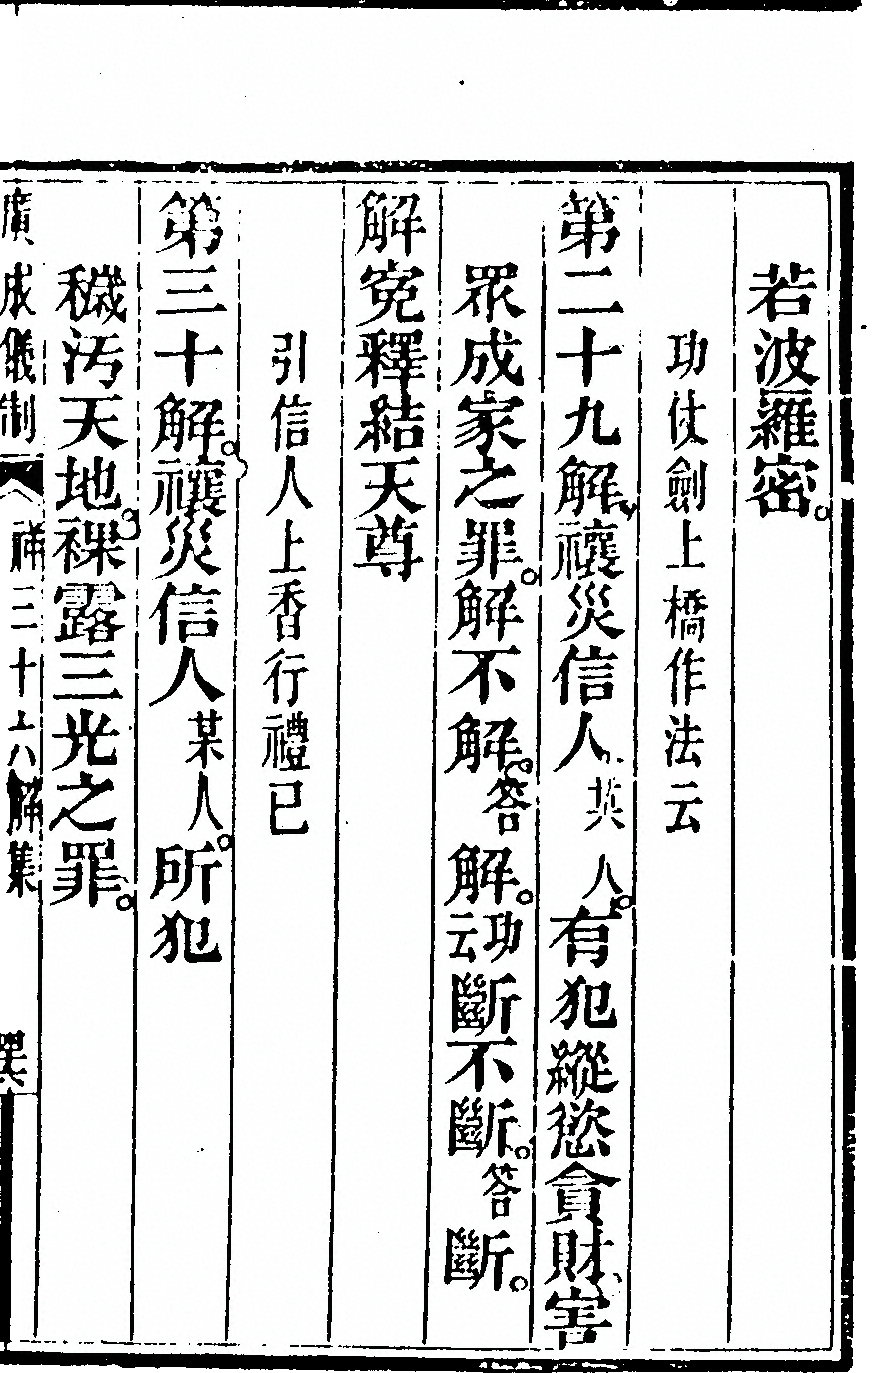 若波羅密。
功仗劍上橋作法云
第二十九解禳災信人某人。有犯縱慾貪財害
眾成家之罪。解不解。答解。功云斷不斷。答斷。
解寃釋結天尊
引信人上香行禮已
第三十解禳災信人某人。所犯
穢汚天地。裸露三光之罪。
廣成儀制 禳三十六解集